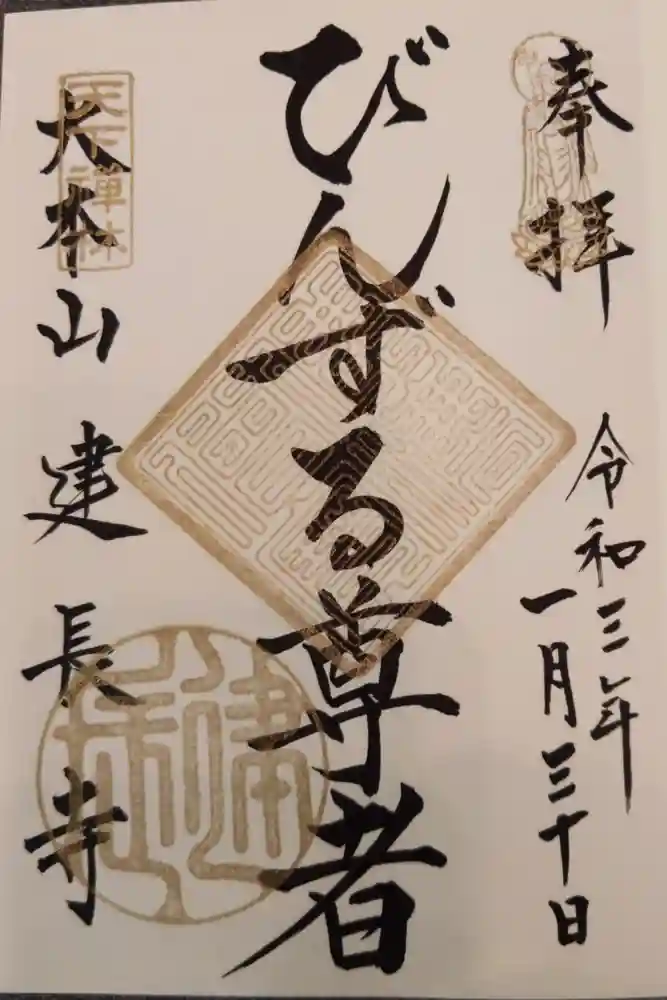 奉拝
令和三年
一月三十日
びんずる尊者
天下禅林
大本山建長寺